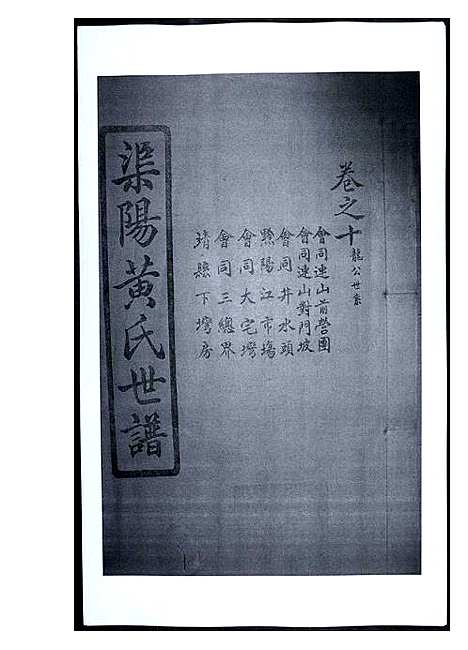 卷之十 龍公世系
會同連山前營團
會同連山對門坡
會同井水頭
黔陽江市塲
會同大宅灣
會同三總界
靖縣下灣房
渠陽黃氏世譜